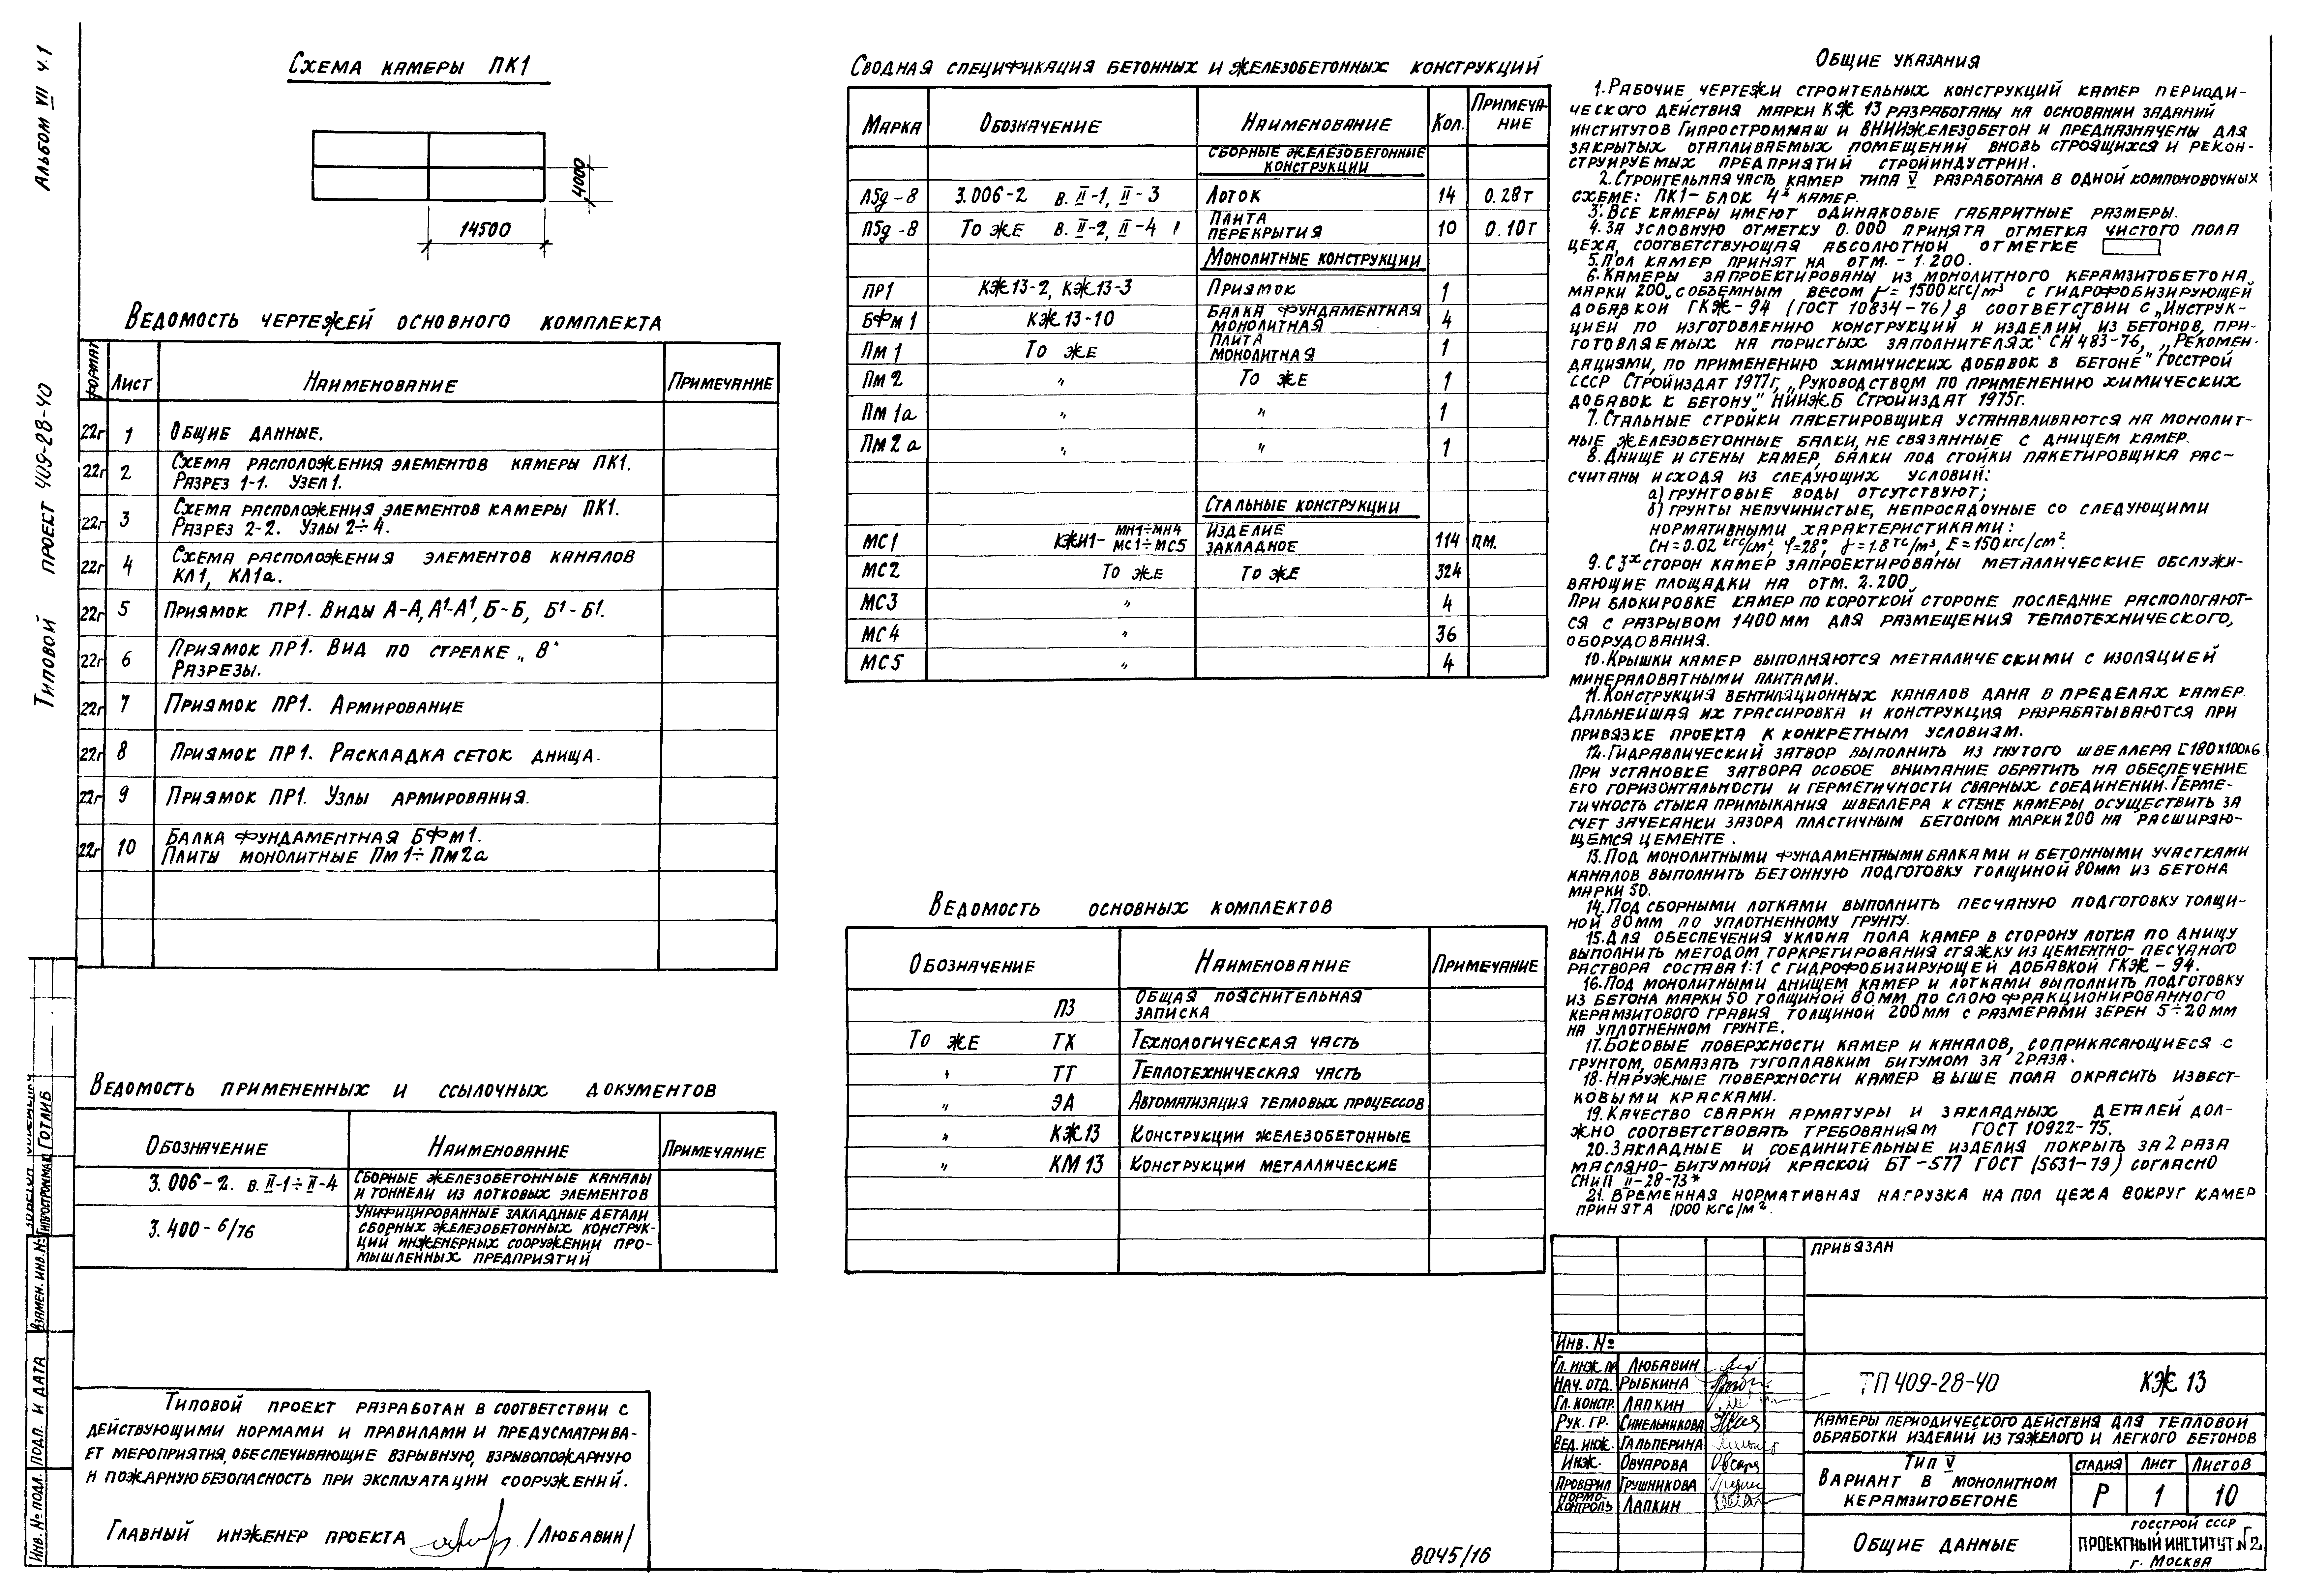 Альбом VII ч.1
Типовой проект 409-28-40
Схема камеры ПК1
4000
14500
Ведомость чертежей основного комплекта
Формат Лист Наименование Примечание
22г 1 Общие данные.
22г 2 Схема расположения элементов камеры ПК1.
Разрез 1-1. Узел 1.
22г 3 Схема расположения элементов камеры ПК1.
Разрез 2-2. Узлы 2÷4.
22г 4 Схема расположения элементов каналов
КЛ1, КЛ1а.
22г 5 Приямок ПР1. Виды А-А, А¹-А¹, Б-Б, Б¹-Б¹.
22г 6 Приямок ПР1. Вид по стрелке „В"
Разрезы.
22г 7 Приямок ПР1. Армирование
22г 8 Приямок ПР1. Раскладка сеток днища.
22г 9 Приямок ПР1. Узлы армирования.
22г 10 Балка фундаментная БФм1.
Плиты монолитные Пм1÷Пм2а
Ведомость примененных и ссылочных документов
Обозначение Наименование Примечание
3.006-2. в. II-1÷II-4 Сборные железобетонные каналы
и тоннели из лотковых элементов
3.400-6/76 Унифицированные закладные детали
сборных железобетонных конструк-
ций инженерных сооружений про-
мышленных предприятий
Типовой проект разработан в соответствии с
действующими нормами и правилами и предусматрива-
ет мероприятия, обеспечивающие взрывную, взрывопожарную
и пожарную безопасность при эксплуатации сооружений.
Главный инженер проекта /Любавин/
Гипростроммаш Готлиб
Взамен. инв. №
Подп. и дата
Инв. № подл.
Сводная спецификация бетонных и железобетонных конструкций
Марка Обозначение Наименование Кол. Примеча-
ние
Сборные железобетонные
конструкции
Л5д-8 3.006-2 в. II-1, II-3 Лоток 14 0.28т
П5д-8 То же в. II-2, II-4 Плита
перекрытия 10 0.10т
Монолитные конструкции
ПР1 КЖ13-2, КЖ13-3 Приямок 1
БФм1 КЖ13-10 Балка фундаментная
монолитная 4
Пм1 То же Плита
монолитная 1
Пм2 „ То же 1
Пм1а „ „ 1
Пм2а „ „ 1
Стальные конструкции
МС1 КЖИ1- МН1÷МН4
МС1÷МС5 Изделие
закладное 114 п.м.
МС2 То же То же 324
МС3 „ 4
МС4 „ 36
МС5 „ 4
Ведомость основных комплектов
Обозначение Наименование Примечание
ПЗ Общая пояснительная
записка
То же ТХ Технологическая часть
„ ТТ Теплотехническая часть
„ ЭА Автоматизация тепловых процессов
„ КЖ13 Конструкции железобетонные
„ КМ13 Конструкции металлические
8045/16
Общие указания
1. Рабочие чертежи строительных конструкций камер периоди-
ческого действия марки КЖ 13 разработаны на основании заданий
институтов Гипростроммаш и ВНИИжелезобетон и предназначены для
закрытых отапливаемых помещений вновь строящихся и рекон-
струируемых предприятий стройиндустрии.
2. Строительная часть камер типа V разработана в одной компоновочных
схеме: ПК1-блок 4х камер.
3. Все камеры имеют одинаковые габаритные размеры.
4. За условную отметку 0.000 принята отметка чистого пола
цеха, соответствующая абсолютной отметке
5. Пол камер принят на отм. -1.200.
6. Камеры запроектированы из монолитного керамзитобетона
марки 200 с объемным весом γ=1500кгс/м³ с гидрофобизирующей
добавкой ГКЖ-94 (ГОСТ 10834-76) в соответствии с „Инструк-
цией по изготовлению конструкций и изделий из бетонов, при-
готовляемых на пористых заполнителях" СН 483-76, „Рекомен-
дациями, по применению химичиских добавок в бетоне" Госстрой
СССР Стройиздат 1977г, „Руководством по применению химических
добавок к бетону" НИИЖБ Стройиздат 1975г.
7. Стальные стройки пакетировщика устанавливаются на монолит-
ные железобетонные балки, не связанные с днищем камер.
8. Днище и стены камер, балки под стойки пакетировщика рас-
считаны исходя из следующих условий:
а) грунтовые воды отсутствуют;
б) грунты непучинистые, непросадочные со следующими
нормативными характеристиками:
Сн=0.02 кгс/см², φ=28°, γ=1.8тс/м³, Е=150кгс/см².
9. С 3х сторон камер запроектированы металлические обслужи-
вающие площадки на отм. 2.200.
При блокировке камер по короткой стороне последние распологают-
ся с разрывом 1400мм для размещения теплотехнического,
оборудования.
10. Крышки камер выполняются металлическими с изоляцией
минераловатными плитами.
11. Конструкция вентиляционных каналов дана в пределах камер.
Дальнейшая их трассировка и конструкция разрабатываются при
привязке проекта к конкретным условиям.
12. Гидравлический затвор выполнить из гнутого швеллера [180х100х6.
При установке затвора особое внимание обратить на обеспечение
его горизонтальности и герметичности сварных соединений. Герме-
тичность стыка примыкания швеллера к стене камеры осуществить за
счет зачеканки зазора пластичным бетоном марки 200 на расширяю-
щемся цементе.
13. Под монолитными фундаментными балками и бетонными участками
каналов выполнить бетонную подготовку толщиной 80мм из бетона
марки 50.
14. Под сборными лотками выполнить песчаную подготовку толщи-
ной 80мм по уплотненному грунту.
15. Для обеспечения уклона пола камер в сторону лотка по днищу
выполнить методом торкретирования стяжку из цементно-песчаного
раствора состава 1:1 с гидрофобизирующей добавкой ГКЖ-94.
16. Под монолитными днищем камер и лотками выполнить подготовку
из бетона марки 50 толщиной 80мм по слою фракционированного
керамзитового гравия толщиной 200мм с размерами зерен 5÷20мм
на уплотненном грунте.
17. Боковые поверхности камер и каналов, соприкасающиеся с
грунтом, обмазать тугоплавким битумом за 2 раза.
18. Наружные поверхности камер выше пола окрасить извест-
ковыми красками.
19. Качество сварки арматуры и закладных деталей дол-
жно соответствовать требованиям ГОСТ 10922-75.
20. Закладные и соединительные изделия покрыть за 2 раза
масляно-битумной краской БТ-577 ГОСТ (5631-79) согласно
СНиП II-28-73*
21. Временная нормативная нагрузка на пол цеха вокруг камер
принята 1000 кгс/м².
Привязан
Инв. №
Гл. инж. пр. Любавин
Нач. отд. Рыбкина
Гл. констр. Лапкин
Рук. гр. Синельникова
Вед. инж. Гальперина
Инж. Овчарова
Проверил Грушникова
Нормо-
контроль Лапкин
ТП 409-28-40 КЖ 13
Камеры периодического действия для тепловой
обработки изделий из тяжелого и легкого бетонов
Тип V
Вариант в монолитном
керамзитобетоне
Стадия Лист Листов
Р 1 10
Общие данные
Госстрой СССР
Проектный институт №2
г. Москва